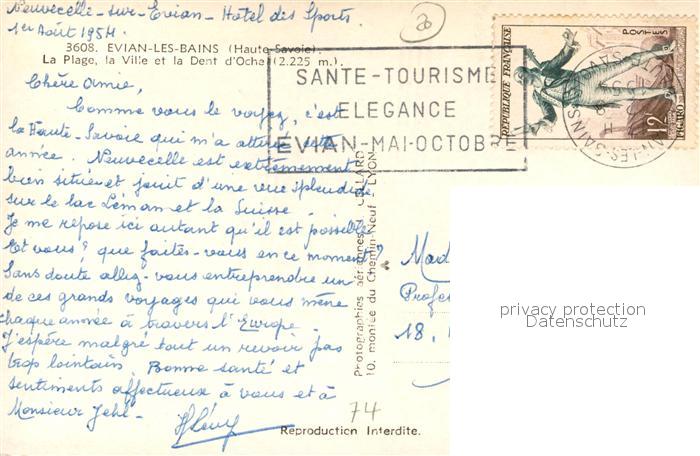 Neuvecelle-sur-Evian-Hôtel des Sports.
1er Août 1954.
20
3608. EVIAN-LES-BAINS (Haute-Savoie).
La Plage, la Ville et la Dent d'Oche (2.225 m.)
Chère Amie,
Comme vous le voyez, c'est
la Haute-Savoie qui m'a attirée cette
année. Neuvecelle est extrêmement
bien située et jouit d'une vue splendide
sur le lac Léman et la Suisse.
Je me repose ici autant qu'il est possible
Et vous? que faites-vous en ce moment?
Sans doute allez-vous entreprendre un
de ces grands voyages qui vous mène
chaque année à travers l'Europe.
J'espère malgré tout un revoir pas
trop lointain. Bonne santé et
sentiments affectueux à vous et à
Monsieur Jehl-
SANTE-TOURISME
ELEGANCE
EVIAN-MAI-OCTOBRE
REPUBLIQUE FRANÇAISE
POSTES
12F
FIGARO
Photographies aériennes
10, montée du Chemin-Neuf - LYON
Mad
Profes
18,
74
Reproduction Interdite.
privacy protection
Datenschutz